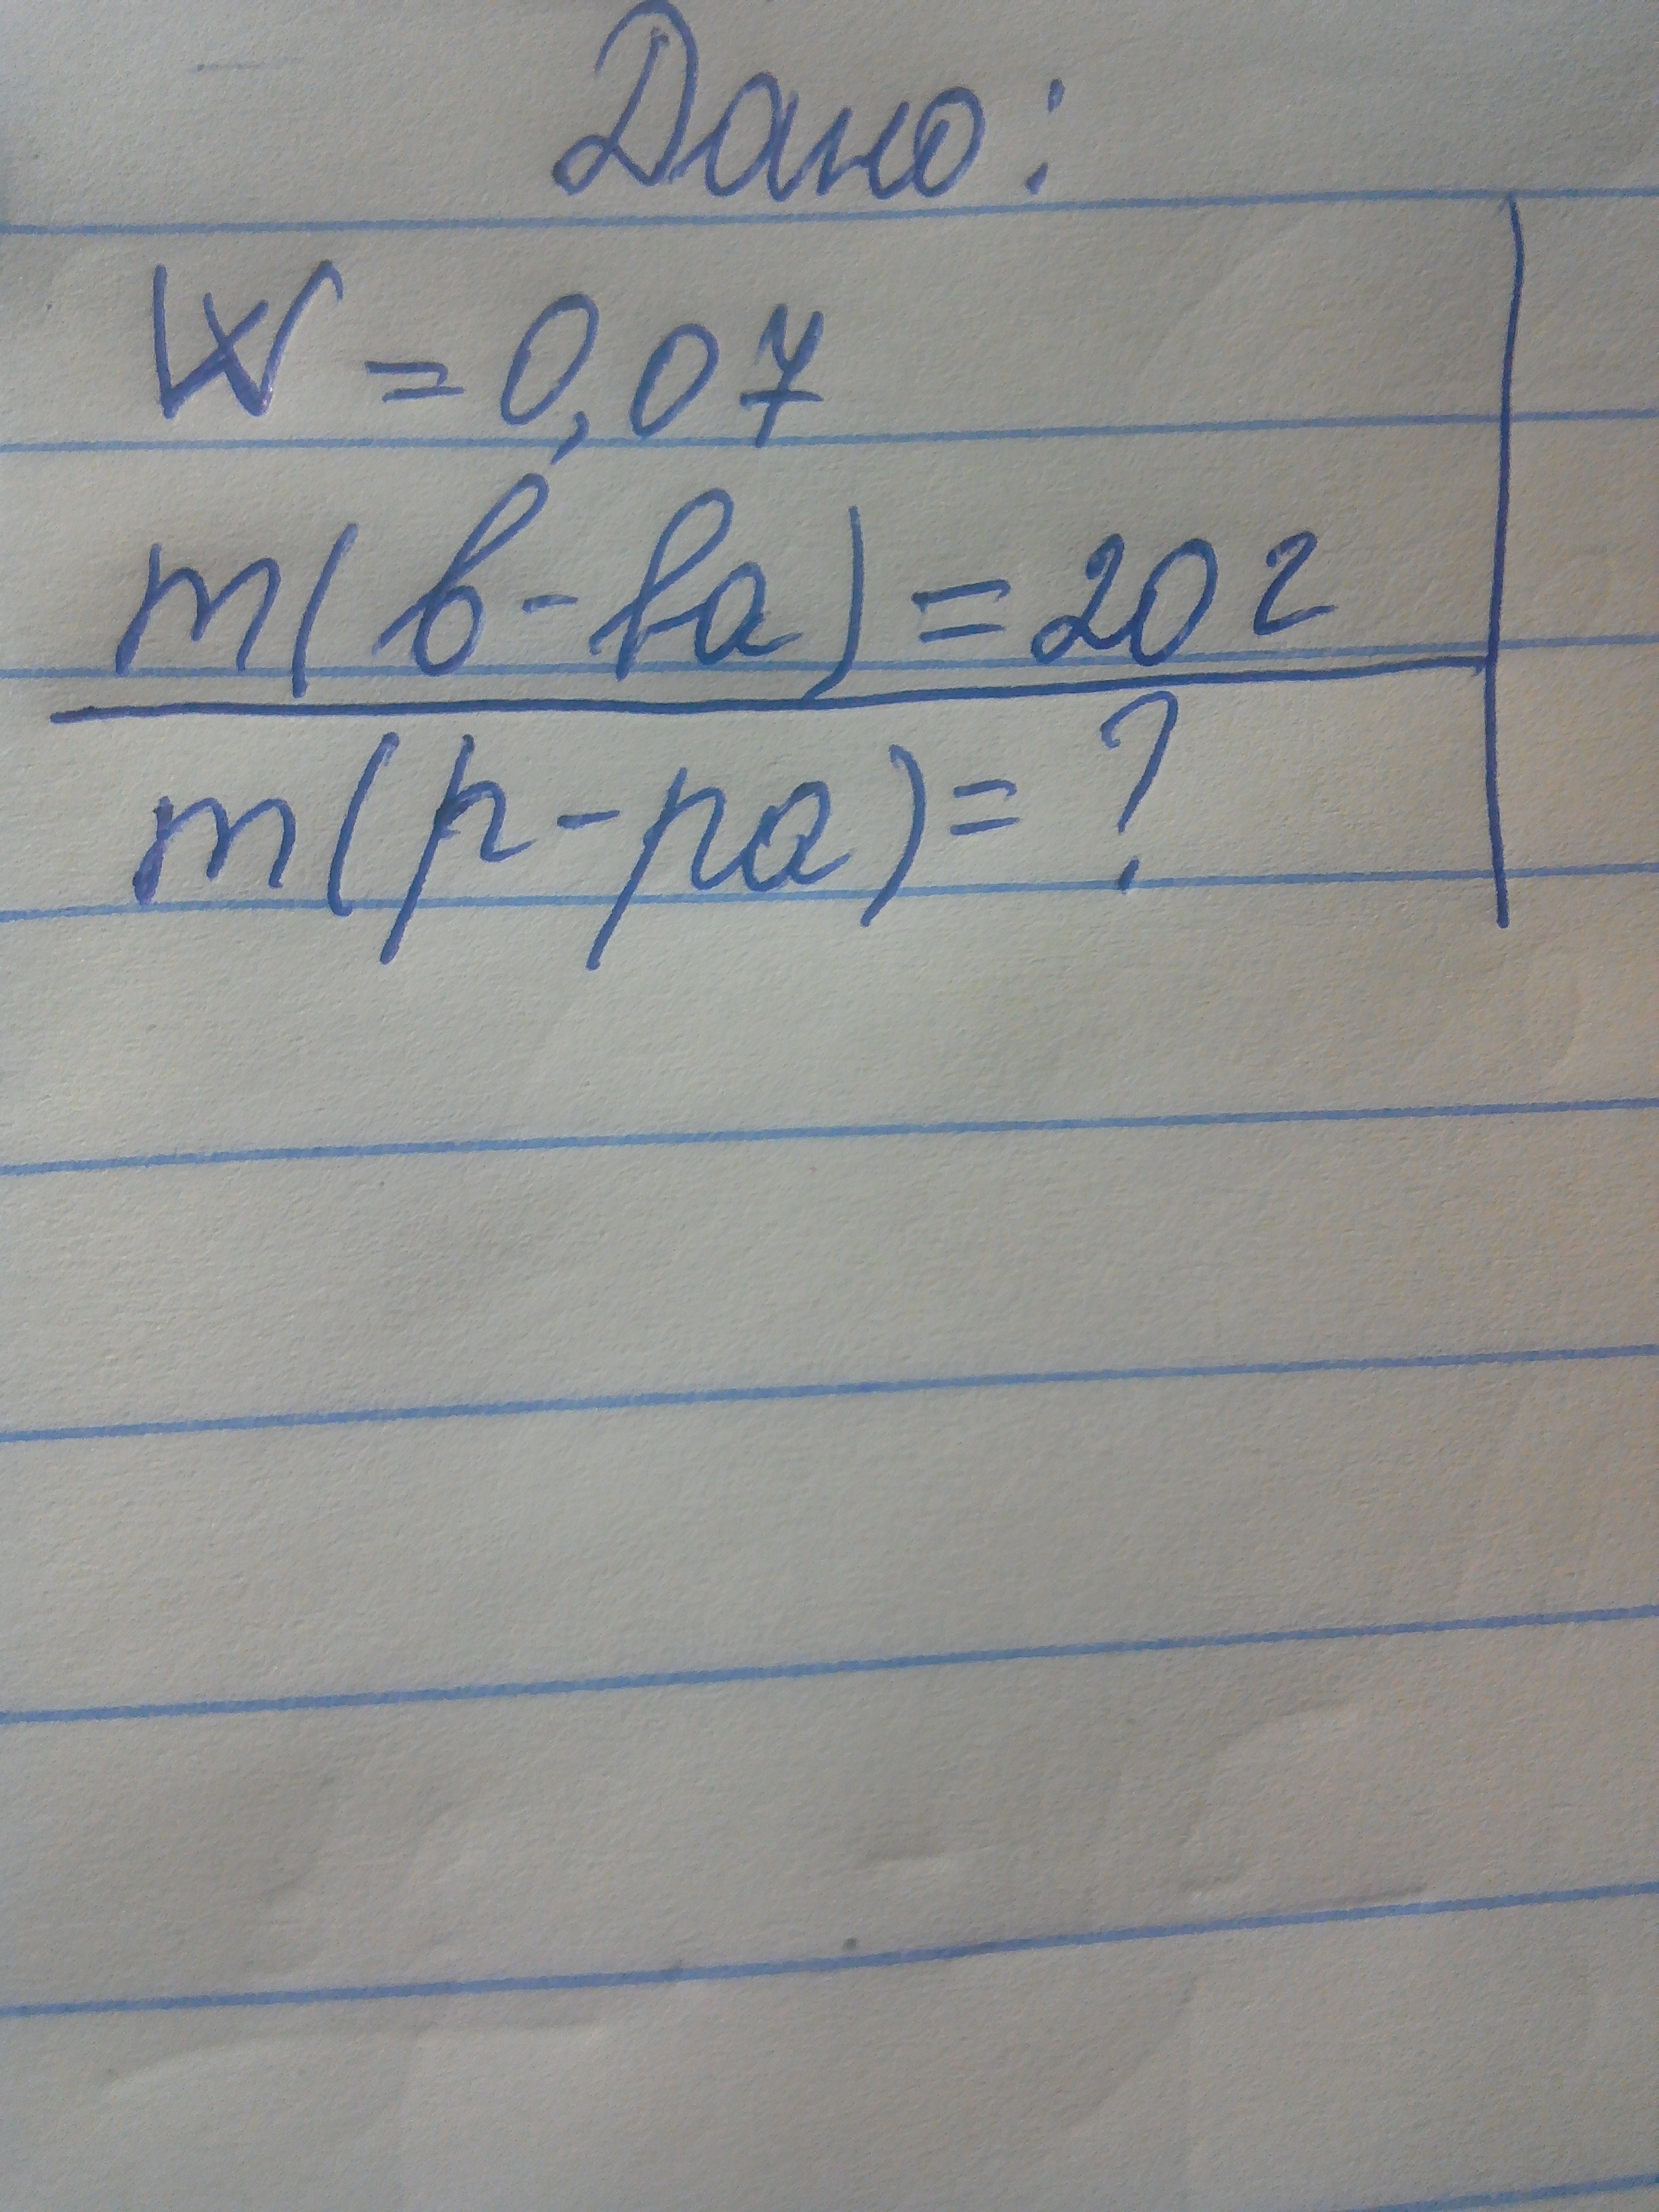 Дано:
W = 0,07
m(в-ва) = 20 г
m(р-ра) = ?